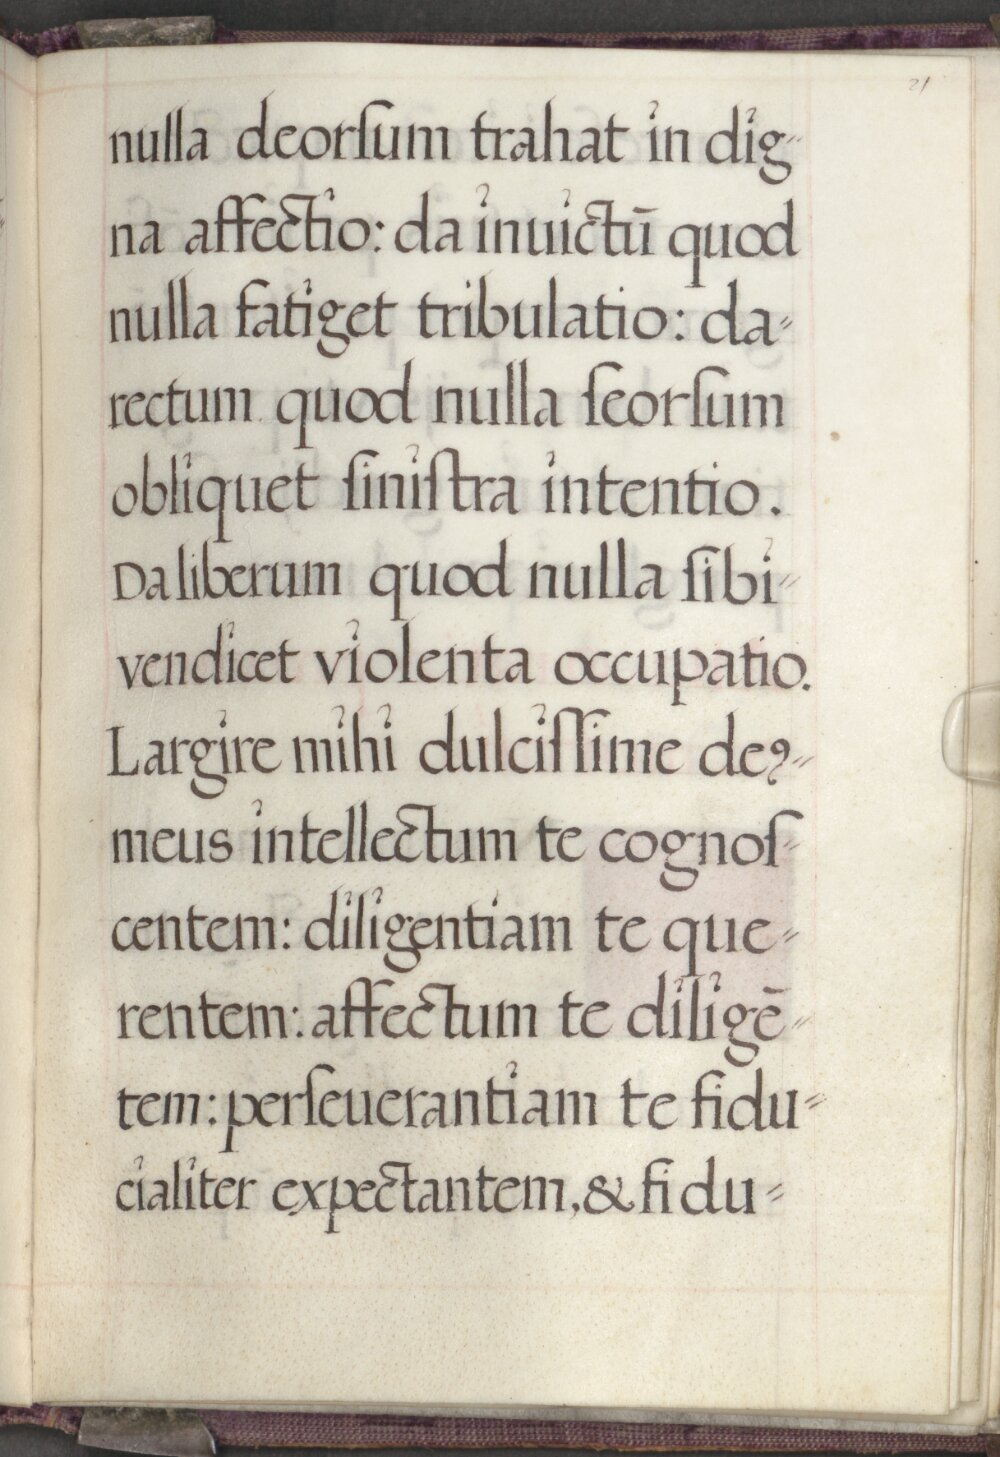 21
nulla deorſum trahat in dig-
na affectio: da inuictū quod
nulla fatiget tribulatio: da-
rectum quod nulla ſeorſum
obliquet ſiniſtra intentio.
Da liberum quod nulla ſibi-
vendicet violenta occupatio.
Largire mihi dulciſſime deꝯ-
meus intellectum te cognoſ-
centem: diligentiam te que-
rentem: affectum te diligē-
tem: perſeuerantiam te fidu-
cialiter expectantem, & fidu-